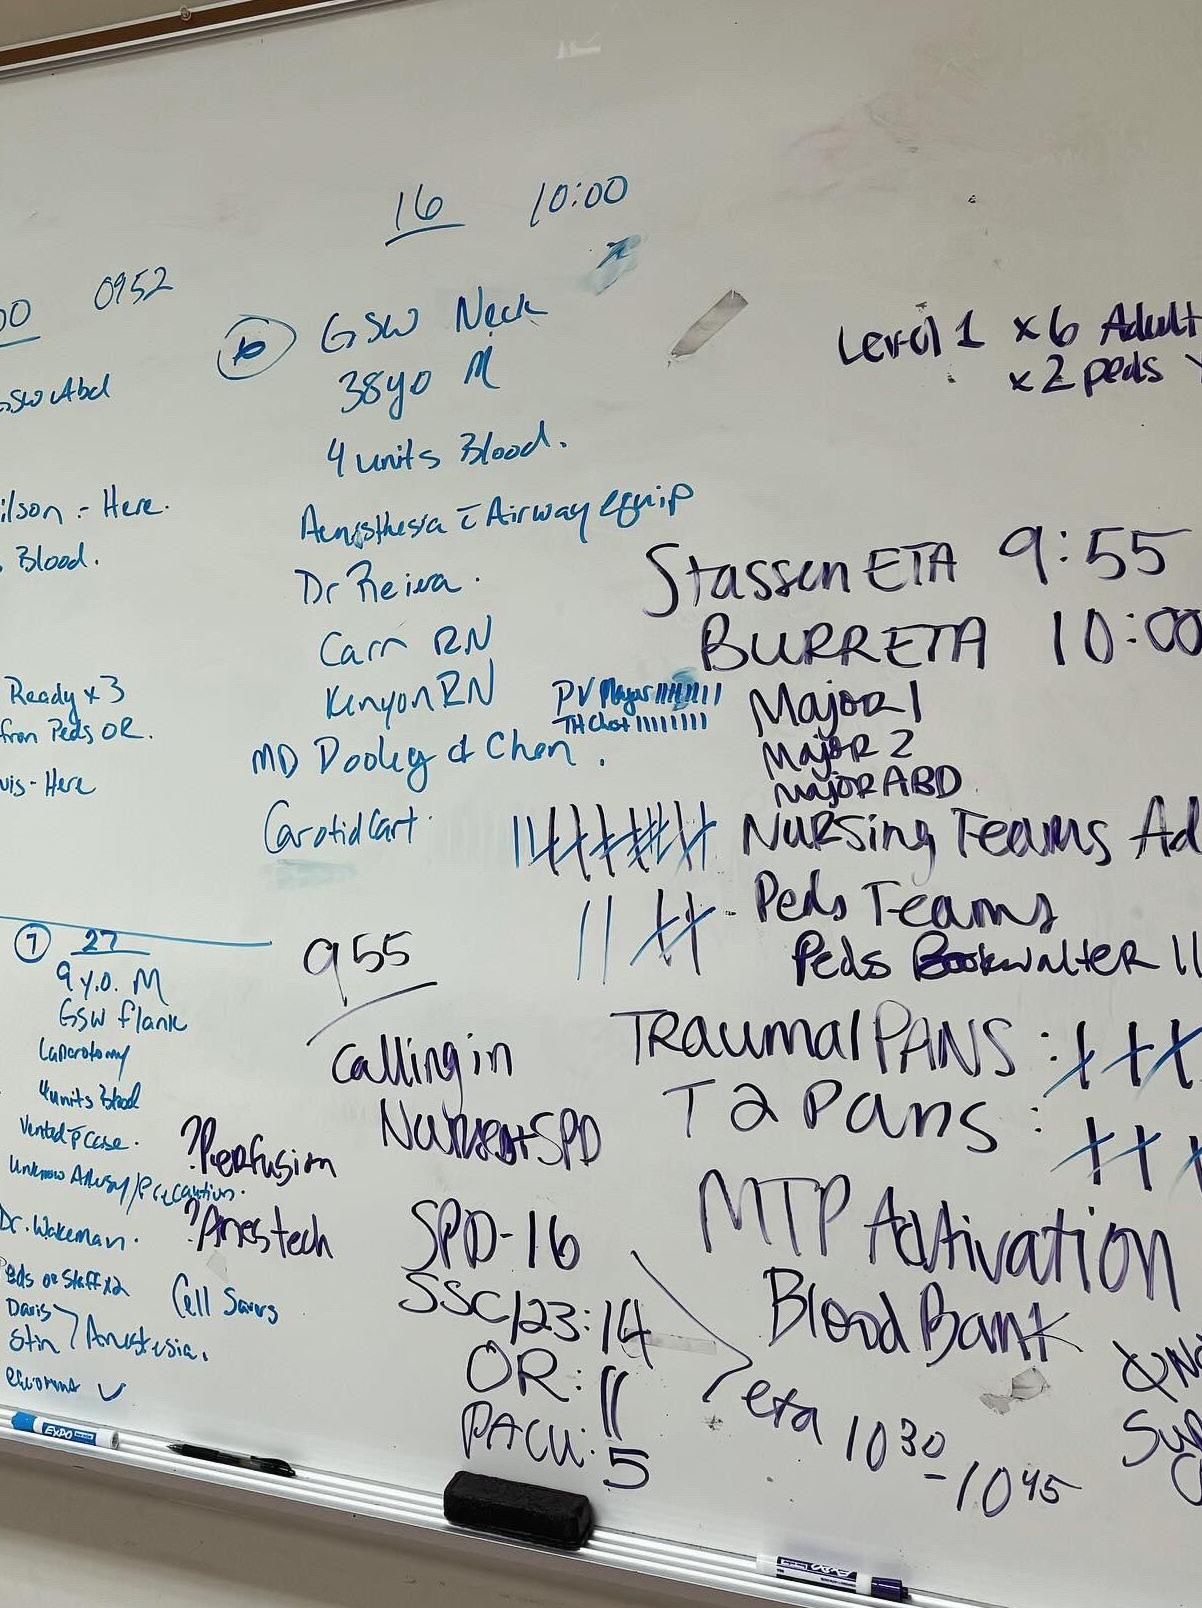 16 10:00
0952
GSW Abd
GSW Neck
38yo M
4 units Blood.
Anesthesia c̄ Airway equip
Dr Reiera.
Carr RN
Kenyon RN
MD Dooley & Chen.
Carotid Cart
ilson - Here.
Blood.
Ready x3
from Peds OR.
vis - Here
Level 1 x6 Adult
x2 peds
Stassen ETA 9:55
BURR ETA 10:00
PV Major IIIIIIIII
TH Chest IIIIIIII
Major 1
Major 2
Major ABD
Nursing Teams Ad
Peds Teams
Peds Bookwalter II
Trauma 1 PANS :
T2 Pans :
MTP Activation
Blood Bank
7 27
9 y.o. M
GSW flank
Laparotomy
4 units Blood
Vented
Unknow Allergy/Precaution.
Dr. Wakeman.
Peds OR Staff x2
Davis
Stin
Anestesia.
955
Calling in
SPD
?Perfusion
?Anes tech
Cell Savers
SPD-16
SSC/23:14
OR: 11
PACU: 5
eta 1030-1045
EXPO